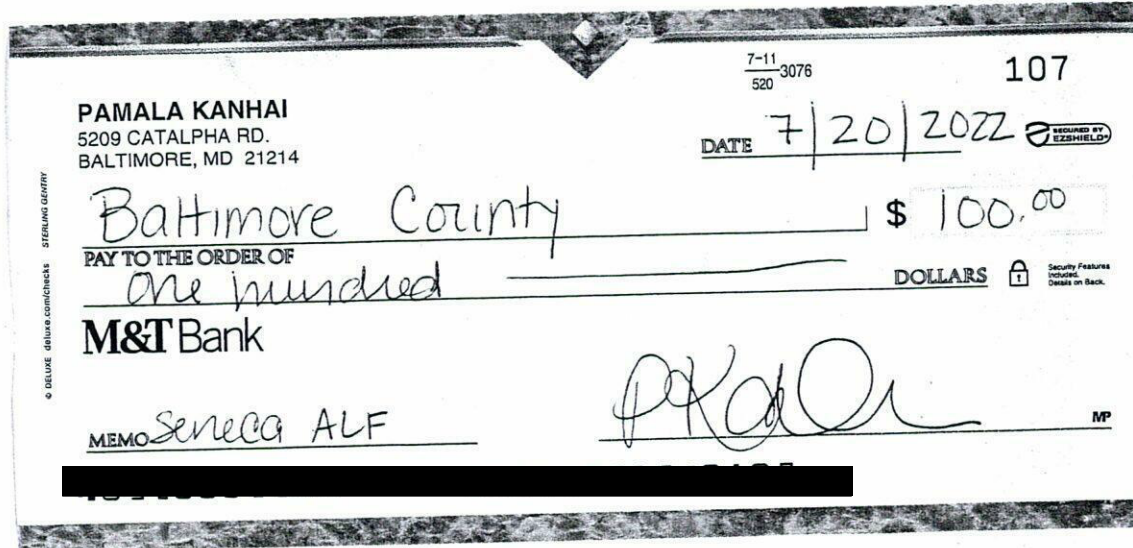 7-11
520 3076
107
PAMALA KANHAI
5209 CATALPHA RD.
BALTIMORE, MD 21214
DATE 7/20/2022
SECURED BY
EZSHIELD
Baltimore County $ 100.00
PAY TO THE ORDER OF
One hundred DOLLARS
Security Features
Included.
Details on Back.
M&T Bank
MEMO Seneca ALF
MP
© DELUXE deluxe.com/checks STERLING GENTRY